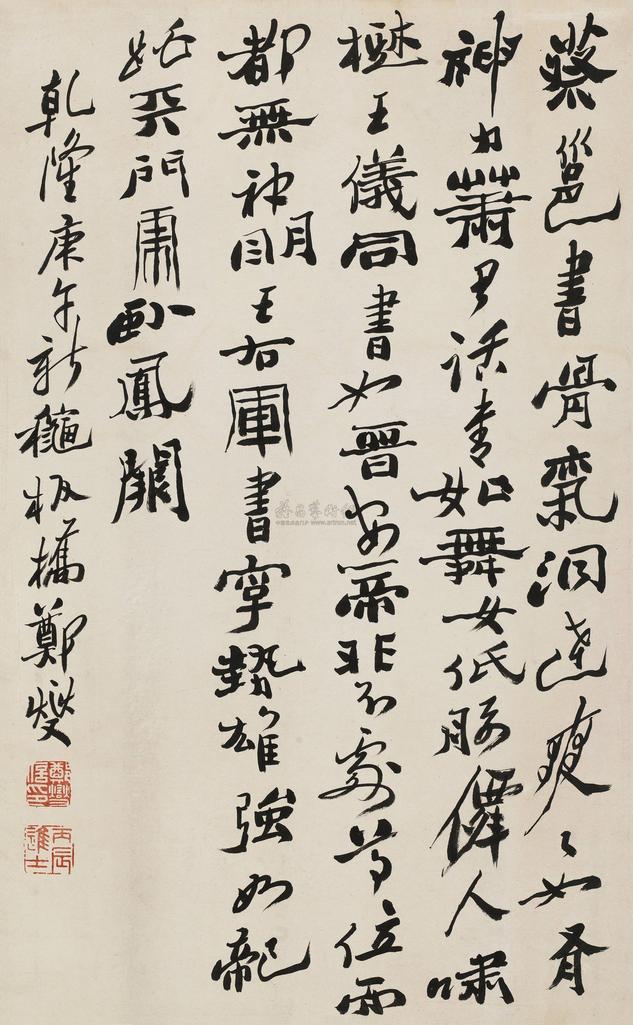 蔡邕書骨氣洞達爽々如有
神力蕭子雲書如舞女低腰僊人嘯
樹王儀同書如晉安帝非不處尊位而
都無神明王右軍書字勢雄強如龍
跳天門虎臥鳳闕
乾隆庚午新秋板橋鄭燮
鄭燮之印
丙辰進士
www.artron.net